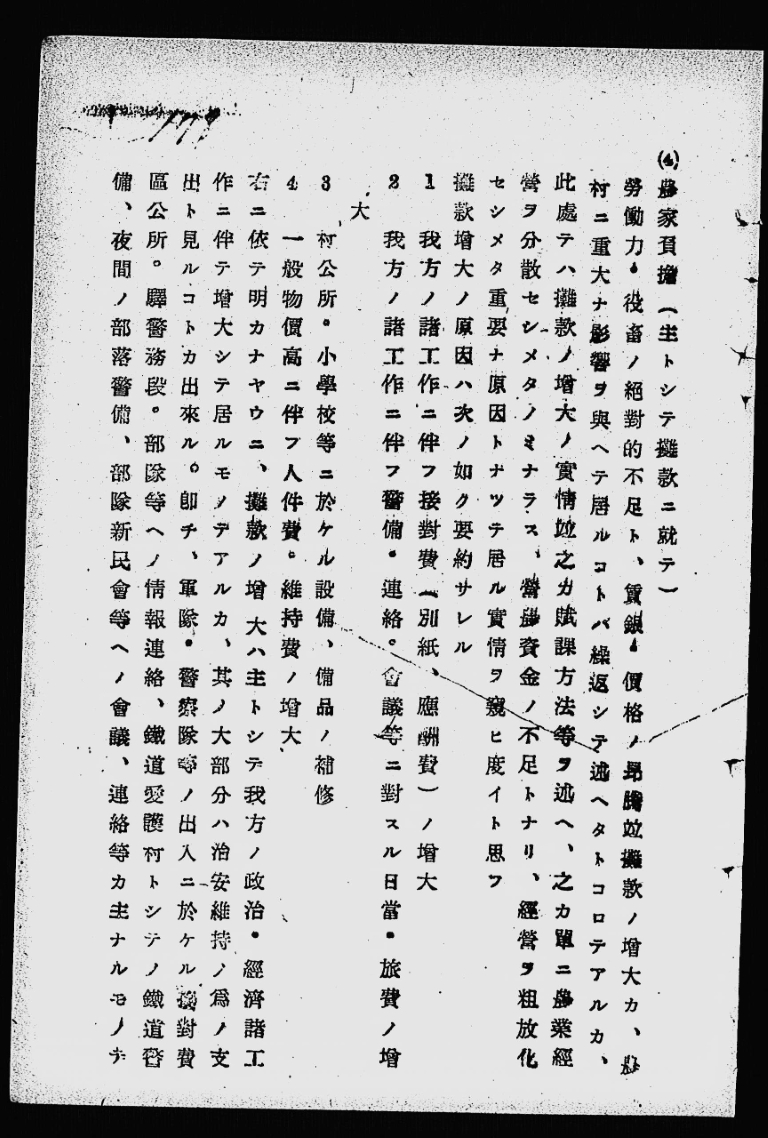 (4)農家負擔(主トシテ攤款ニ就テ)
勞働力・役畜ノ絕對的不足ト、賃銀・價格ノ昂騰竝攤款ノ增大カ、農
村ニ重大ナ影響ヲ與ヘテ居ルコトバ繰返シテ述ヘタトコロテアルカ、
此處テハ攤款ノ增大ノ實情竝之カ賦課方法等ヲ述ヘ、之カ單ニ農業經
營ヲ分散セシメタノミナラス、營農資金ノ不足トナリ、經營ヲ粗放化
セシメタ重要ナ原因トナツテ居ル實情ヲ窺ヒ度イト思フ
攤款增大ノ原因ハ次ノ如ク要約サレル
1 我方ノ諸工作ニ伴フ接對費(別紙、應酬費)ノ增大
2 我方ノ諸工作ニ伴フ警備・連絡。會議等ニ對スル日當・旅費ノ增
大
3 村公所・小學校等ニ於ケル設備、備品ノ補修
4 一般物價高ニ伴フ人件費。維持費ノ增大
右ニ依テ明カナヤウニ、攤款ノ增大ハ主トシテ我方ノ政治・經濟諸工
作ニ伴テ增大シテ居ルモノデアルカ、其ノ大部分ハ治安維持ノ爲ノ支
出ト見ルコトカ出來ル。卽チ、軍隊・警察隊等ノ出入ニ於ケル接對費
區公所。驛警務段。部隊等ヘノ情報連絡、鐵道愛護村トシテノ鐵道警
備、夜間ノ部落警備、部隊新民會等ヘノ會議、連絡等カ主ナルモノテ